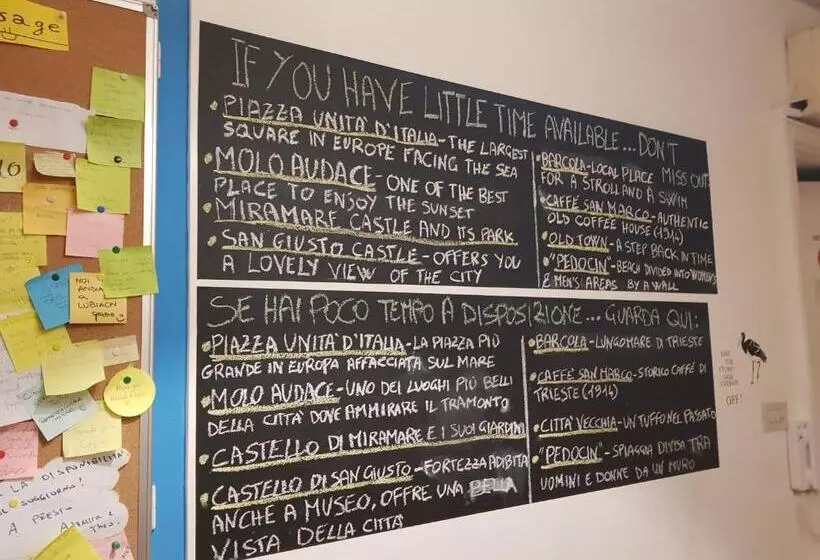 sage
IF YOU HAVE LITTLE TIME AVAILABLE...DON'T
MISS OUT:
• PIAZZA UNITA' D'ITALIA-THE LARGEST
SQUARE IN EUROPE FACING THE SEA
• MOLO AUDACE- ONE OF THE BEST
PLACE TO ENJOY THE SUNSET
• MIRAMARE CASTLE AND ITS PARK
• SAN GIUSTO CASTLE-OFFERS YOU
A LOVELY VIEW OF THE CITY
• BARCOLA-LOCAL PLACE
FOR A STROLL AND A SWIM
• CAFFÈ SAN MARCO-AUTHENTIC
OLD COFFEE HOUSE (1914)
• OLD TOWN-A STEP BACK IN TIME
• "PEDOCIN"-BEACH DIVIDED INTO WOMEN'S
& MEN'S AREAS BY A WALL
SE HAI POCO TEMPO A DISPOSIZIONE... GUARDA QUI:
• PIAZZA UNITA' D'ITALIA-LA PIAZZA PIÙ
GRANDE IN EUROPA AFFACCIATA SUL MARE
• MOLO AUDACE-UNO DEI LUOGHI PIÙ BELLI
DELLA CITTÀ DOVE AMMIRARE IL TRAMONTO
• CASTELLO DI MIRAMARE E I SUOI GIARDINI
• CASTELLO DI SAN GIUSTO-FORTEZZA ADIBITA
ANCHE A MUSEO, OFFRE UNA BELLA
VISTA DELLA CITTÀ
• BARCOLA-LUNGOMARE DI TRIESTE
• CAFFÈ SAN MARCO-STORICO CAFFÈ DI
TRIESTE (1914)
• CITTÀ VECCHIA-UN TUFFO NEL PASSATO
• "PEDOCIN"-SPIAGGIA DIVISA TRA
UOMINI E DONNE DA UN MURO
OFF!
NOI
LA DISPONIBILITÀ
SOGGIORNO!
A PRESTO